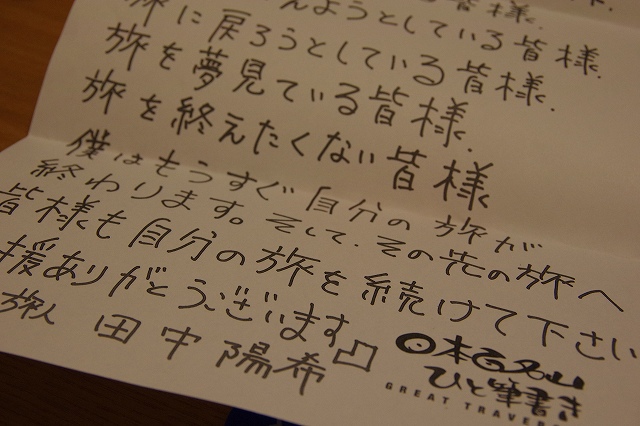 んようとしている皆様.
旅に戻ろうとしている皆様.
旅を夢見ている皆様.
旅を終えたくない皆様
僕はもうすぐ自分の旅が
終わります。そして、その先の旅へ
皆様も自分の旅を続けて下さい
援ありがとうございます
旅人 田中陽希
日本百名山
ひと筆書き
GREAT TRAVERS